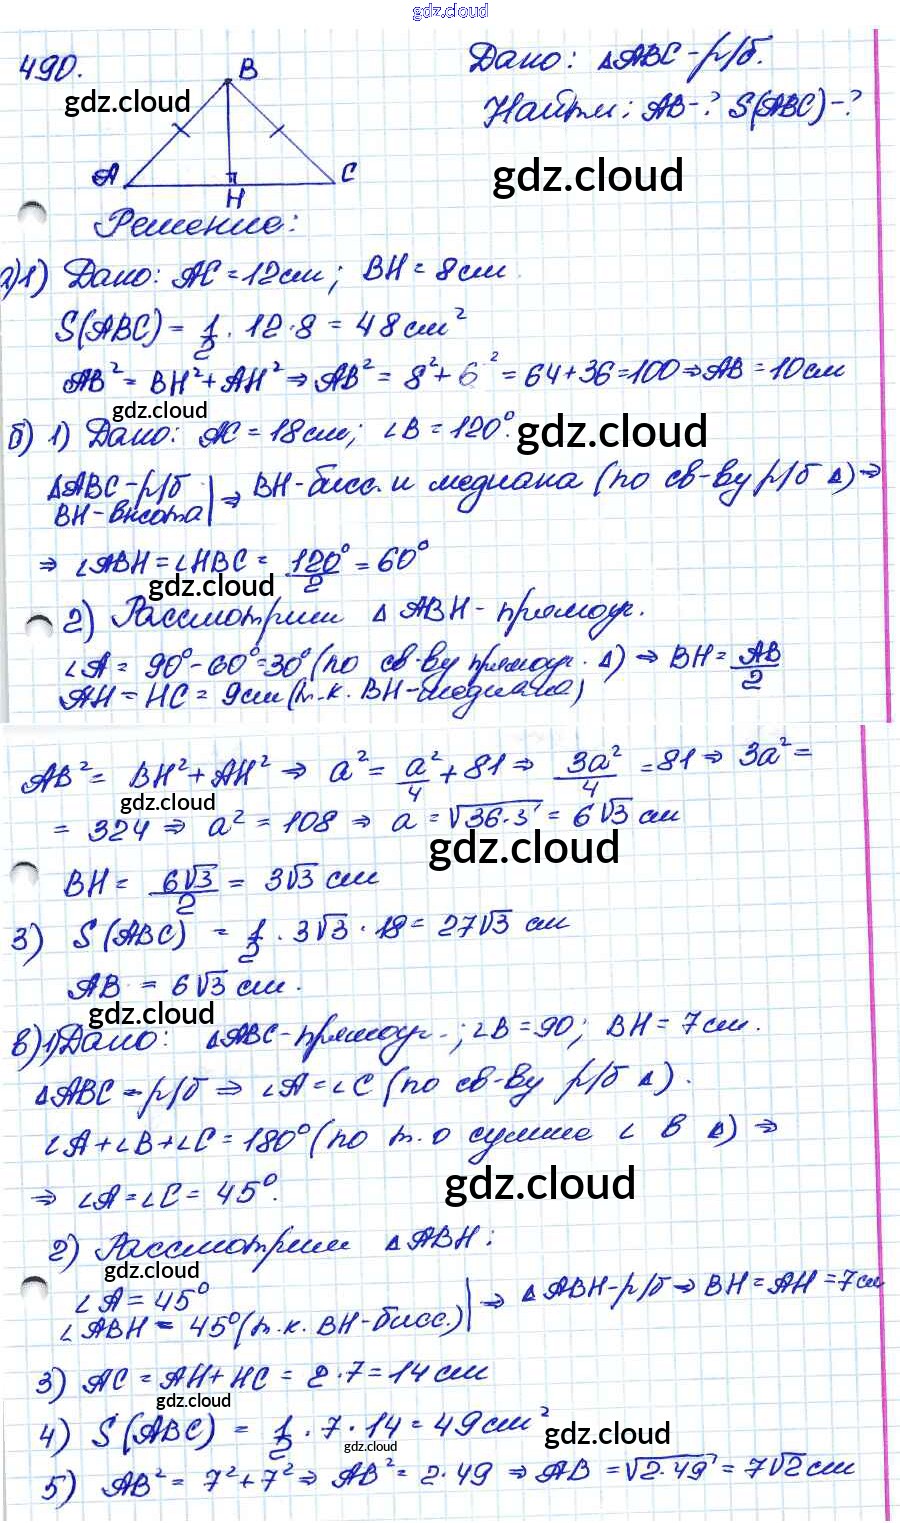 gdz.cloud
490.
Дано: △ABC - р/б.
Найти: AB - ? S(ABC) - ?
gdz.cloud
B
A
H
C
gdz.cloud
Решение:
а)1) Дано: AC = 12 см; BH = 8 см.
S(ABC) = 1/2 · 12 · 8 = 48 см²
AB² = BH² + AH² ⇒ AB² = 8² + 6² = 64 + 36 = 100 ⇒ AB = 10 см
gdz.cloud
б) 1) Дано: AC = 18 см; ∠B = 120°.
gdz.cloud
△ABC - р/б
BH - высота | ⇒ BH - бисс. и медиана (по св-ву р/б △) ⇒
⇒ ∠ABH = ∠HBC = 120°/2 = 60°
gdz.cloud
2) Рассмотрим △ABH - прямоуг.
∠A = 90° - 60° = 30° (по св-ву прямоуг. △) ⇒ BH = AB/2
AH = HC = 9 см (т.к. BH - медиана)
AB² = BH² + AH² ⇒ a² = a²/4 + 81 ⇒ 3a²/4 = 81 ⇒ 3a² =
gdz.cloud
= 324 ⇒ a² = 108 ⇒ a = √36·3 = 6√3 см
gdz.cloud
BH = 6√3/2 = 3√3 см
3) S(ABC) = 1/2 · 3√3 · 18 = 27√3 см
AB = 6√3 см.
gdz.cloud
в)1) Дано: △ABC - прямоуг.; ∠B = 90; BH = 7 см.
△ABC - р/б ⇒ ∠A = ∠C (по св-ву р/б △).
∠A + ∠B + ∠C = 180° (по т. о сумме ∠ в △) ⇒
⇒ ∠A = ∠C = 45°.
gdz.cloud
2) Рассмотрим △ABH:
gdz.cloud
∠A = 45°
∠ABH = 45° (т.к. BH - бисс.) | ⇒ △ABH - р/б ⇒ BH = AH = 7 см
3) AC = AH + HC = 2 · 7 = 14 см
gdz.cloud
4) S(ABC) = 1/2 · 7 · 14 = 49 см²
gdz.cloud
gdz.cloud
5) AB² = 7² + 7² ⇒ AB² = 2 · 49 ⇒ AB = √2·49 = 7√2 см